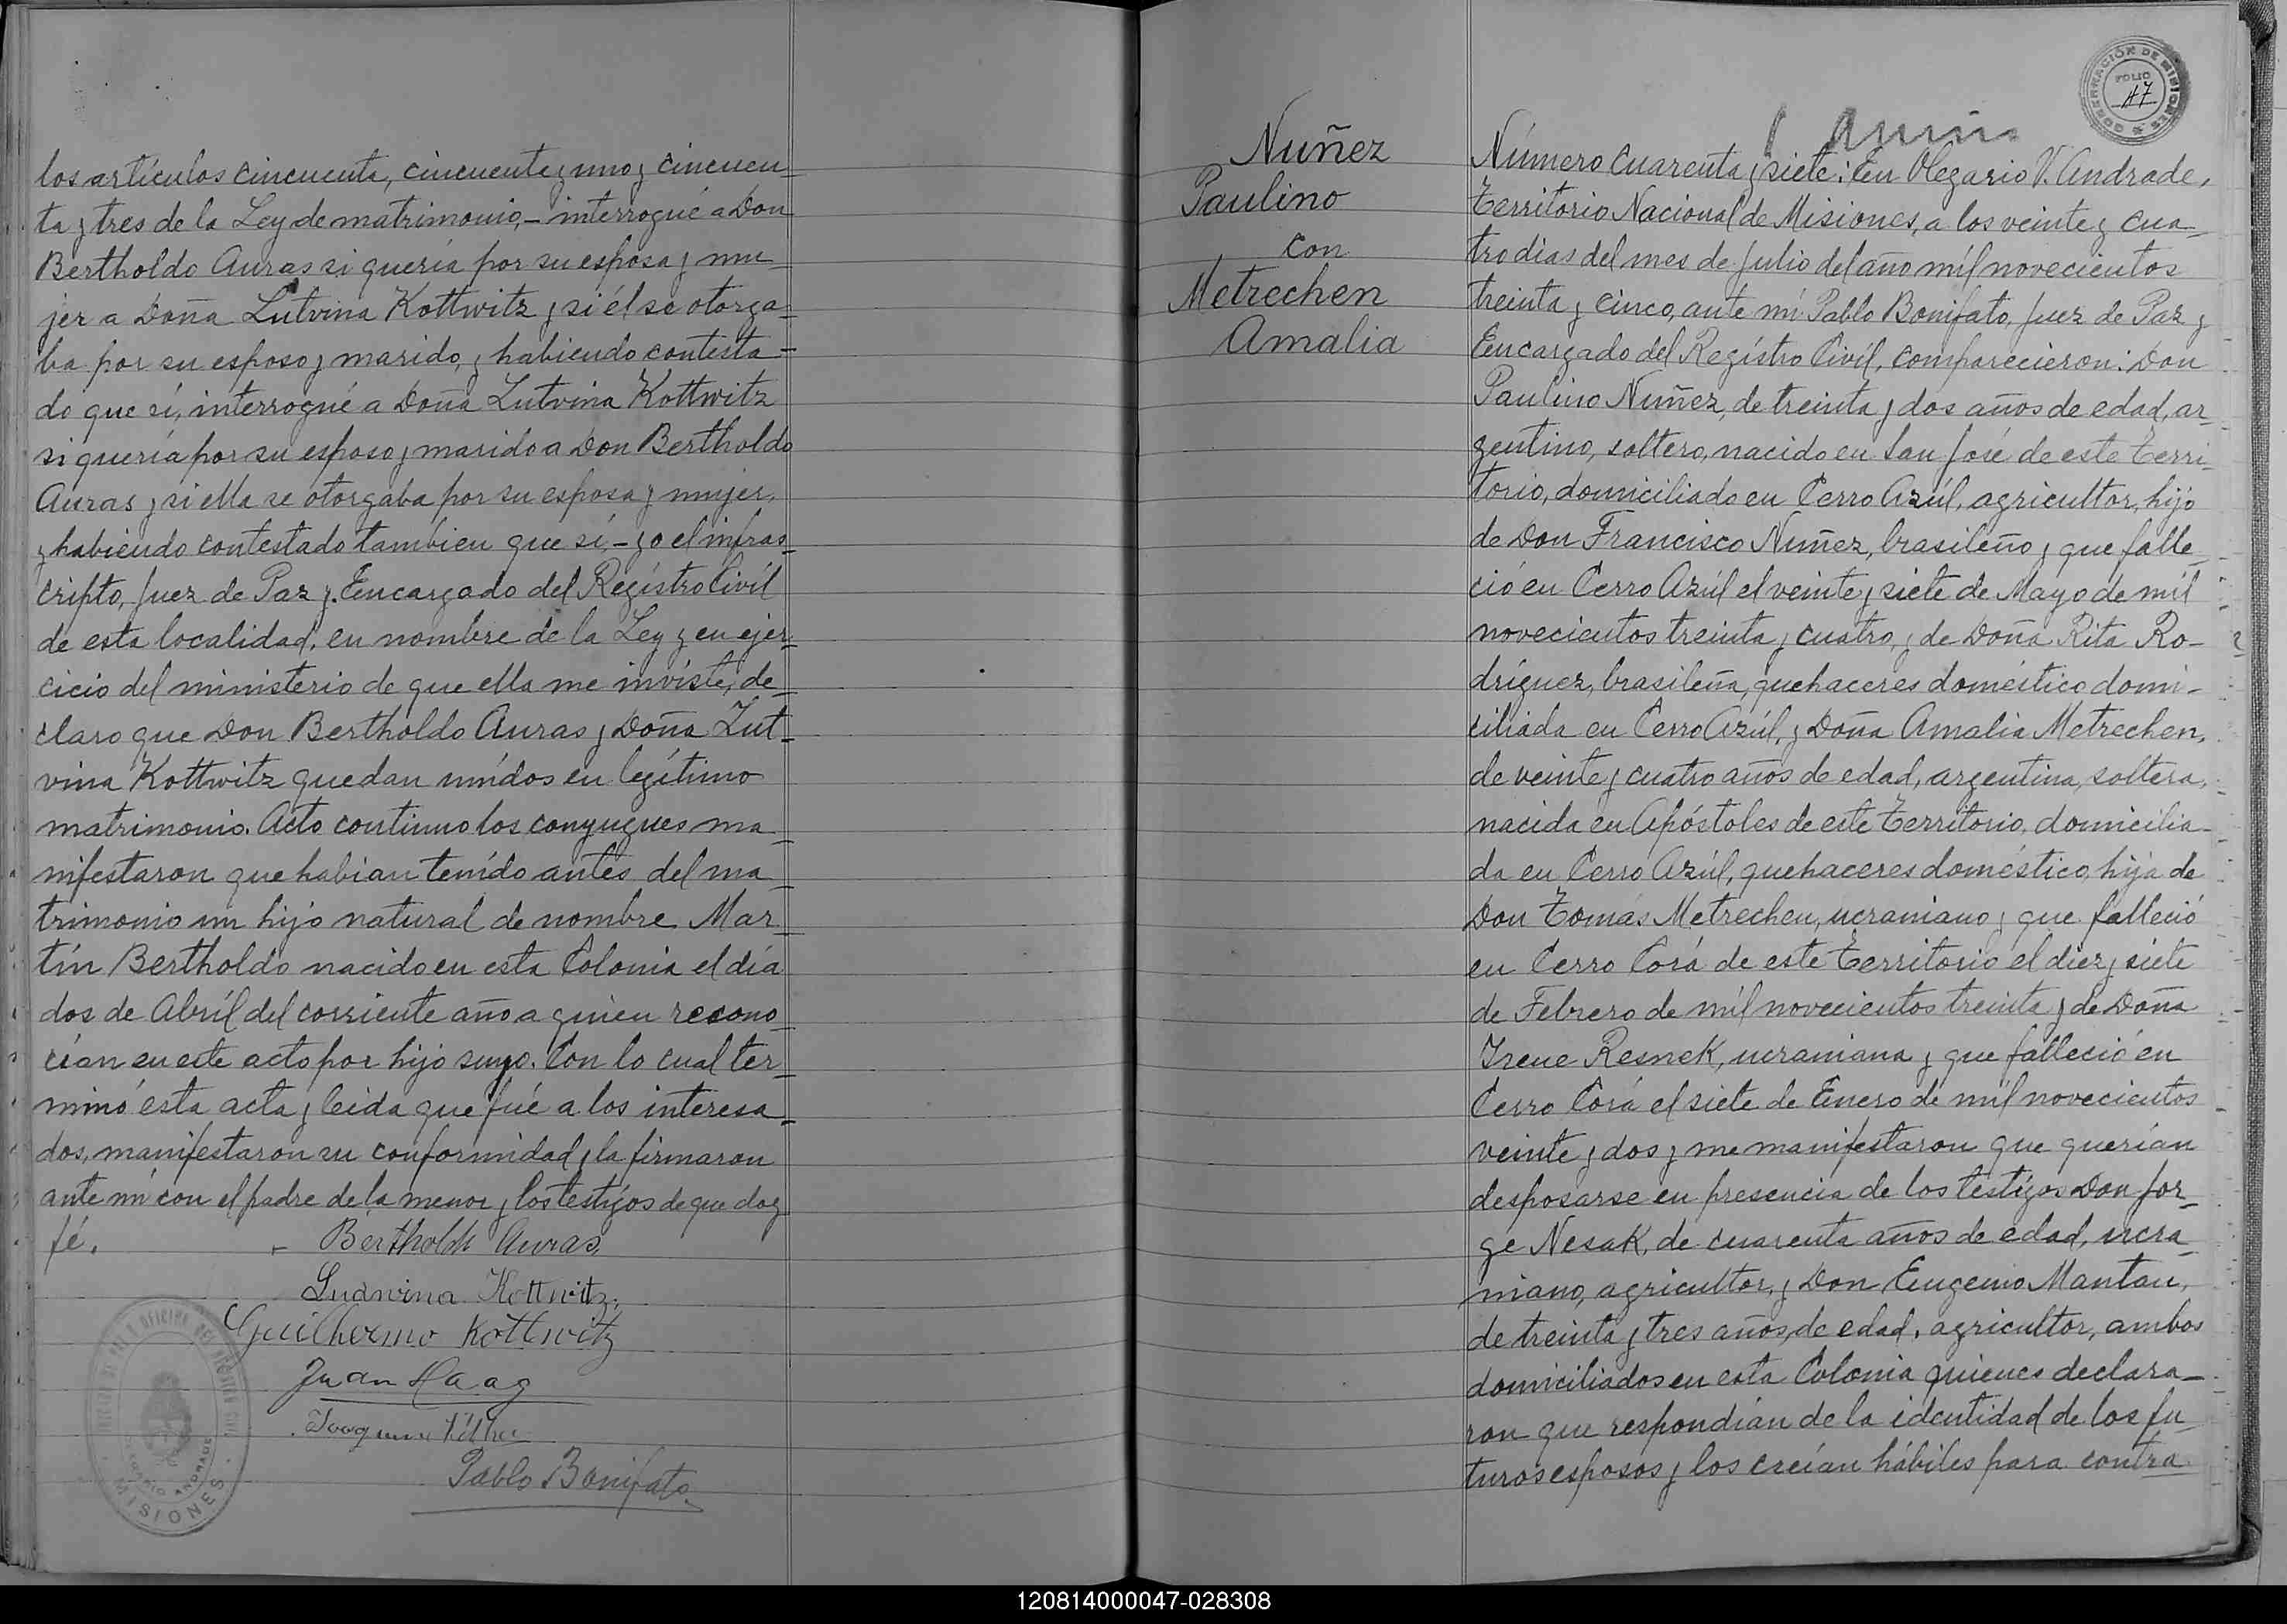 los artículos cincuenta, cincuenta y uno y cincuen-
ta y tres de la Ley de matrimonio,- interrogué a Don
Bertholdo Auras si quería por su esposa y mu-
jer a Doña Lutvina Kottwitz y si él se otorga-
ba por su esposo y marido, y habiendo contesta-
do que sí, interrogué a Doña Lutvina Kottwitz
si quería por su esposo y marido a Don Bertholdo
Auras y si ella se otorgaba por su esposa y mujer,
y habiendo contestado tambien que sí,- yo el infras-
cripto, Juez de Paz y Encargado del Regístro Civíl
de esta localidad, en nombre de la Ley y en ejer-
cicio del ministerio de que ella me inviste, de-
claro que Don Bertholdo Auras y Doña Lut-
vina Kottwitz quedan unidos en legítimo
matrimonio. Acto continuo los conyugues ma-
nifestaron que habian tenído antes del ma-
trimonio un hijo natural de nombre Mar-
tín Bertholdo nacido en esta Colonia el día
dos de Abríl del corriente año a quien recono-
cían en este acto por hijo suyo. Con lo cual ter-
minó ésta acta y leida que fué a los interesa-
dos, manifestaron su conformidad y la firmaron
ante mí con el padre de la menor y los testigos de que doy
fé.
Berthold Auras
Ludwina Kottwitz.
Guilhermo Kottwitz
Juan Haag
Pablo Bonifato
MISIONES
GOBERNACIÓN DE MISIONES
FOLIO
47
Nuñez
Paulino
con
Metrechen
Amalia
Número cuarenta y siete: En Olegario V. Andrade,
Territorio Nacional de Misiones, a los veinte y cua-
tro dias del mes de Julio del año míl novecientos
treinta y cinco, ante mí Pablo Bonifato, Juez de Paz y
Encargado del Regístro Civíl, comparecieron: Don
Paulino Nuñez, de treinta y dos años de edad, ar-
gentino, soltero, nacido en San José de este Terri-
torio, domiciliado en Cerro Azúl, agricultor, hijo
de Don Francisco Nuñez, brasileño y que falle-
ció en Cerro Azúl el veinte y siete de Mayo de míl
novecientos treinta y cuatro, y de Doña Rita Ro-
dríguez, brasileña, quehaceres doméstico domi-
ciliada en Cerro Azúl, y Doña Amalia Metrechen,
de veinte y cuatro años de edad, argentina, soltera,
nacida en Apóstoles de este Territorio, domicilia-
da en Cerro Azúl, quehaceres doméstico, hija de
Don Tomás Metrechen, ucraniano y que falleció
en Cerro Corá de este Territorio el diez y siete
de Febrero de míl novecientos treinta y de Doña
Irene Resnek, ucraniana y que falleció en
Cerro Corá el siete de Enero de míl novecientos
veinte y dos y me manifestaron que querían
desposarse en presencia de los testigos Don Jor-
ge Nesak, de cuarenta años de edad, ucra-
niano, agricultor, y Don Eugenio Mantau,
de treinta y tres años de edad, agricultor, ambos
domiciliados en esta Colonia quienes declara-
ron que respondían de la identidad de los fu-
turos esposos y los creían hábiles para contra-
120814000047-028308